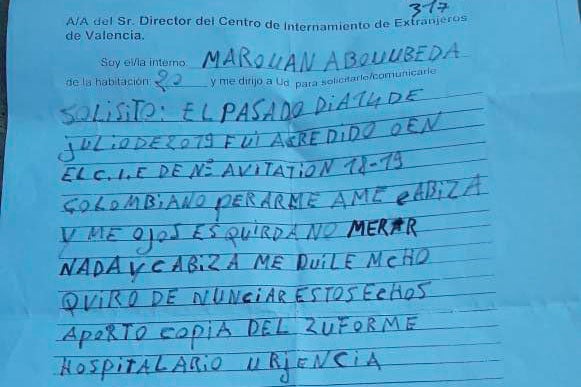 317
A/A del Sr. Director del Centro de Internamiento de Extranjeros
de Valencia.
Soy el/la interno: MAROUAN ABOUUBEDA
de la habitación: 20 y me dirijo a Ud para solicitarle/comunicarle
SOLiSiTO: EL PASADO DiA 14 DE
JULiO DE 2019 FUi ACREDIDO OEN
EL C.I.E DE Nº AVITATiON 18-19
COLOMBiANO PERARME A ME CABIZA
Y ME OJOS ESQUIRDA NO MERAR
NADA y CABiZA ME DUiLE MCHO
QUiRO DE NUNCiAR ESTOS EcHOS
APORTO COPiA DEL ZUFORME
HOSPiTALARiO URJENCiA